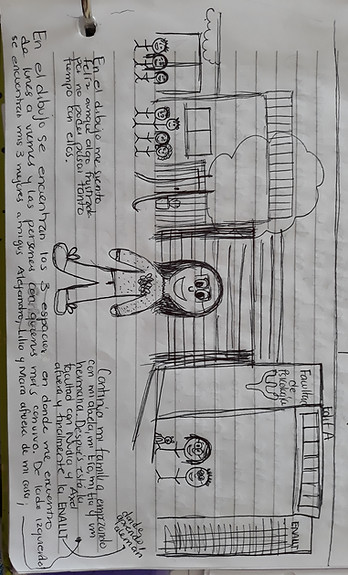 Facultad
de
Psicología
ENALLT
donde
aprendo
aleman
En el dibujo me siento
feliz aunque algo frustrada
por no poder pasar tanto
tiempo con ellos.
Contigo mi familia, empezando
con mi abuela, mi tía, mi tío y mi
hermana. Después está la
facultad con Nadia y Axel
afuera y finalmente la ENALLT
En el dibujo se encuentran los 3 espacios en donde me encuentro
de lunes a viernes y las personas con quienes más convivo. De lado izquierdo
se encuentran mis 3 mejores amigos Alejandro, Lilia y Mara afuera de mi casa,